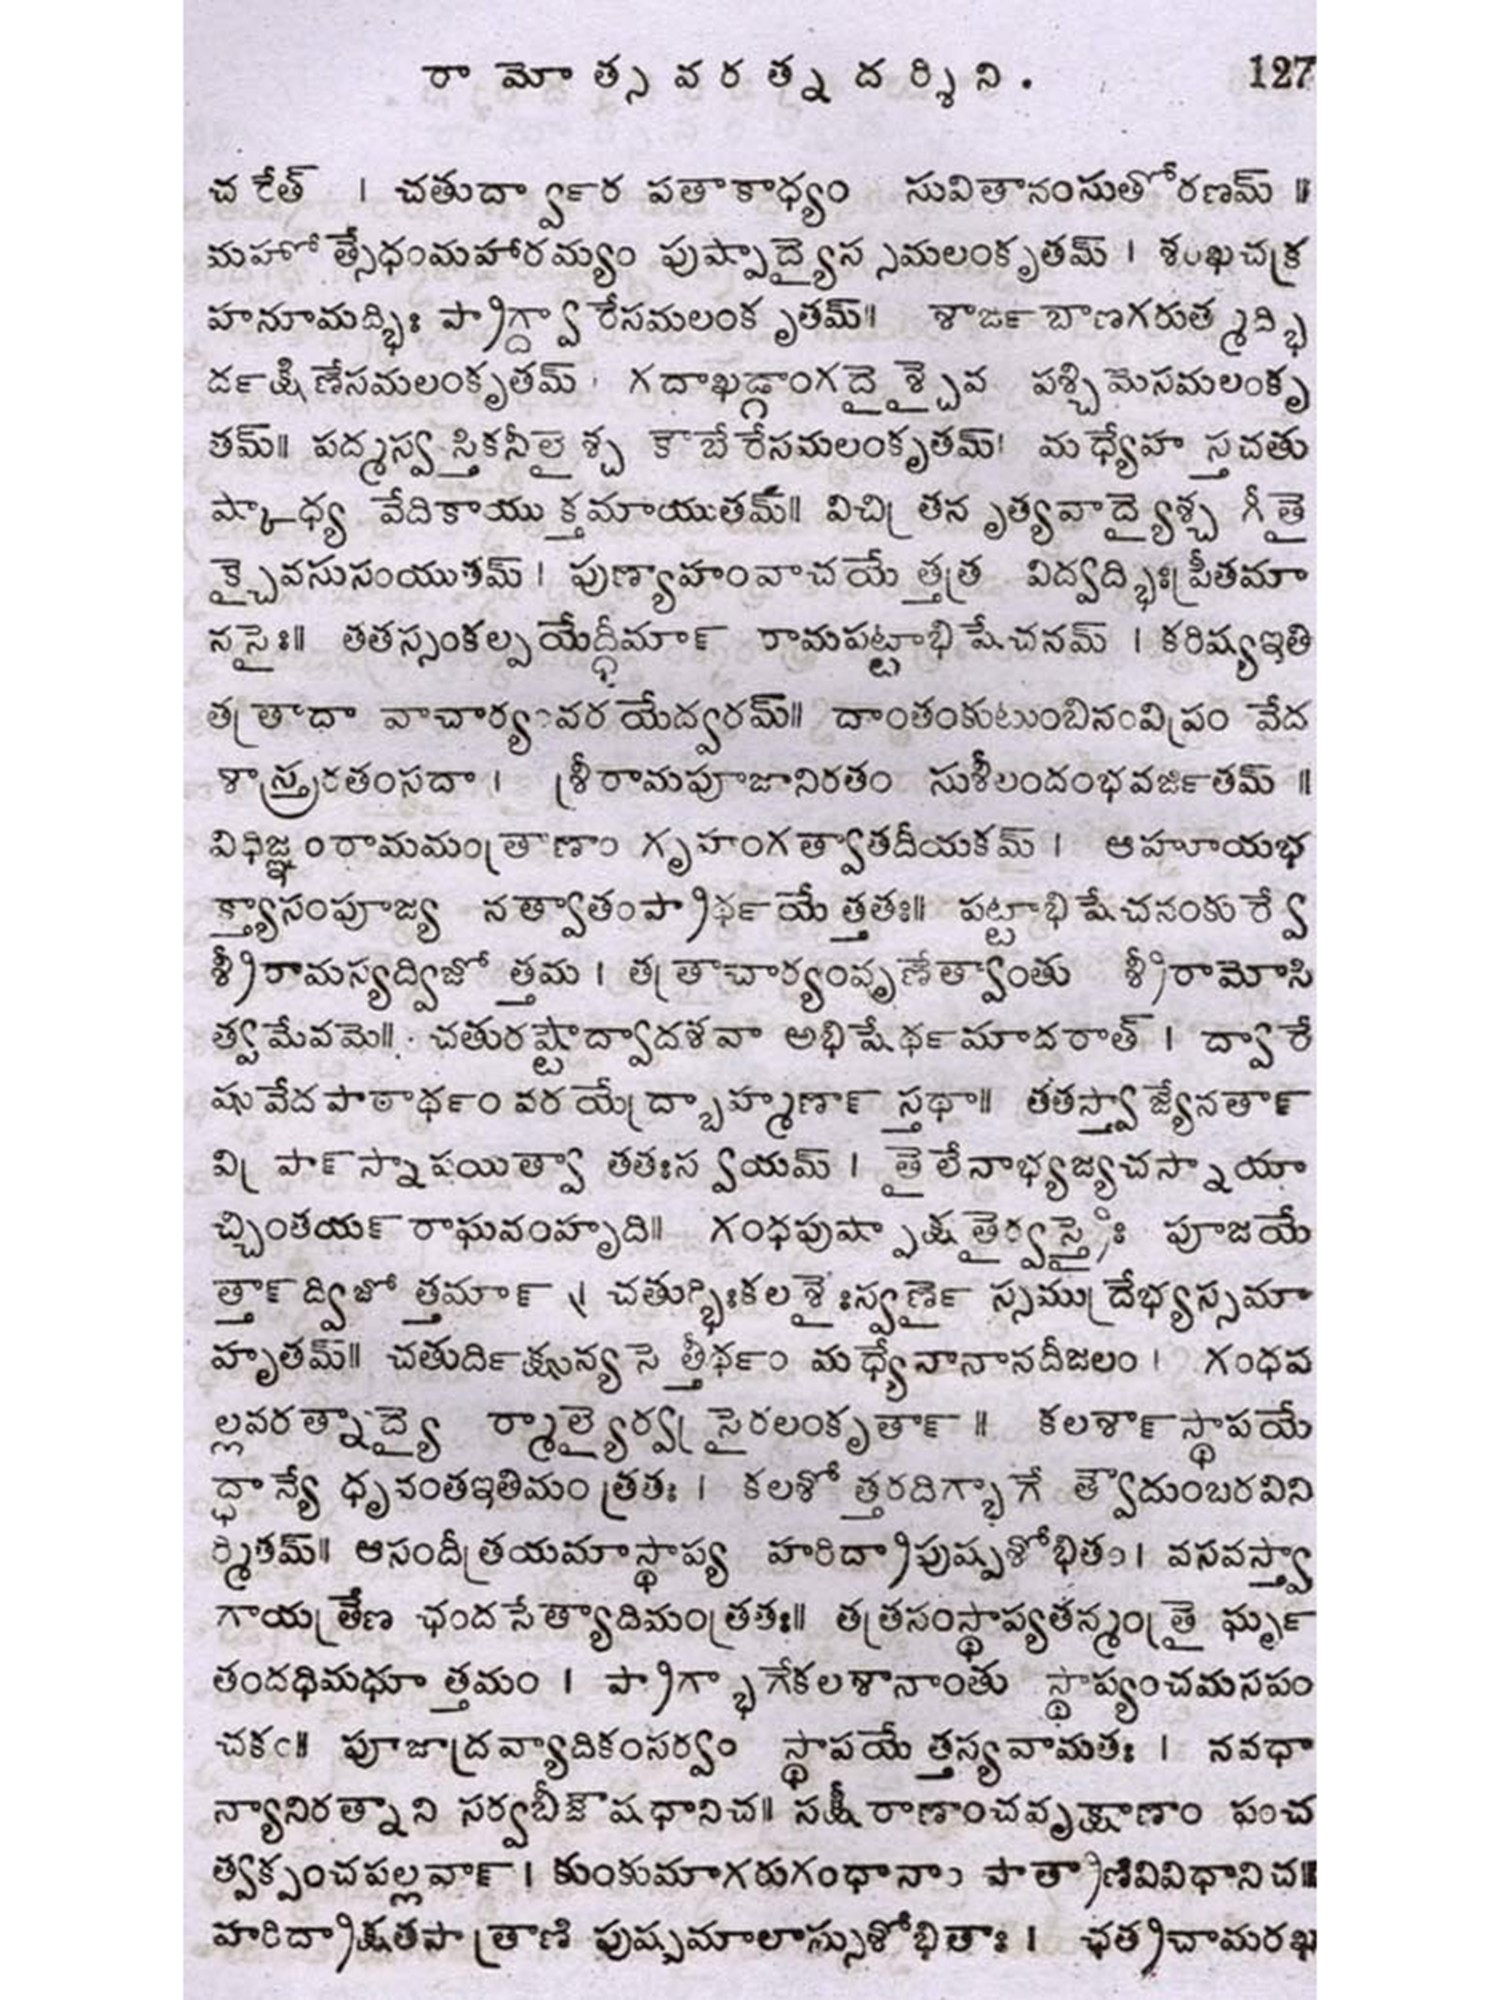 రామోత్సవరత్నదర్శిని. 127
చరేత్ । చతుర్ద్వార పతాకాధ్యం సువితానంసుతోరణమ్ ॥
మహోత్సేధంమహారమ్యం పుష్పాద్యైస్సమలంకృతమ్ । శంఖచక్ర
హనూమద్భిః ప్రాగ్ద్వారేసమలంకృతమ్॥ శార్ఙబాణగరుత్మద్భి
ర్దక్షిణేసమలంకృతమ్ । గదాఖడ్గాంగదైశ్చైవ పశ్చిమెసమలంకృ
తమ్॥ పద్మస్వస్తికనీలైశ్చ కౌబేరేసమలంకృతమ్। మధ్యేహస్తచతు
ష్కాధ్య వేదికాయుక్తమాయుతమ్॥ విచిత్రనృత్యవాద్యైశ్చ గీతై
శ్చైవసుసంయుతమ్। పుణ్యాహంవాచయేత్తత్ర విద్వద్భిఃప్రీతమా
నసైః॥ తతస్సంకల్పయేద్ధీమాన్ రామపట్టాభిషేచనమ్ । కరిష్యఇతి
తత్రాదా వాచార్యంవరయేద్వరమ్॥ దాంతంకుటుంబినంవిప్రం వేద
శాస్త్రరతంసదా । శ్రీరామపూజానిరతం సుశీలందంభవర్జితమ్ ॥
విధిజ్ఞంరామమంత్రాణాం గృహంగత్వాతదీయకమ్। ఆహూయభ
క్త్యాసంపూజ్య నత్వాతంప్రార్థయేత్తతః॥ పట్టాభిషేచనంకుర్వే
శ్రీరామస్యద్విజోత్తమ । తత్రాచార్యంవృణేత్వాంతు శ్రీరామోసి
త్వమేవమె॥ చతురష్టౌద్వాదశవా అభిషేర్థమాదరాత్ । ద్వారే
షువేదపాఠార్థం వరయేద్బ్రాహ్మణాన్ స్తథా॥ తతస్త్వాజ్యేనతాన్
విప్రాన్ స్నాపయిత్వా తతఃస్వయమ్ । తైలేనాభ్యజ్యచస్నాయా
చ్చింతయన్ రాఘవంహృది॥ గంధపుష్పాక్షతైర్వస్త్రైః పూజయే
త్తాన్ ద్విజోత్తమాన్ । చతుర్భిఃకలశైఃస్వర్ణై స్సముద్రేభ్యస్సమా
హృతమ్॥ చతుర్దిక్షున్యసెత్తీర్థం మధ్యేనానానదీజలం। గంధప
ల్లవరత్నాద్యై ర్మాల్యైర్వస్త్రైరలంకృతాన్ ॥ కలశాన్ స్థాపయే
ద్ధాన్యే ధృవంతఇతిమంత్రతః । కలశోత్తరదిగ్భాగే త్వౌదుంబరవిని
ర్మితమ్॥ ఆసందీత్రయమాస్థాప్య హరిద్రాపుష్పశోభితం। వసవస్త్వా
గాయత్రేణ ఛందసేత్యాదిమంత్రతః॥ తత్రసంస్థాప్యతన్మంత్రై ర్ఘృ
తందధిమధూత్తమం । ప్రాగ్భాగేకలశానాంతు స్థాప్యంచమసపం
చకం॥ పూజాద్రవ్యాదికంసర్వం స్థాపయేత్తస్యవామతః । నవధా
న్యానిరత్నాని సర్వబీజౌషధానిచ॥ సక్షీరాణాంచవృక్షాణాం పంచ
త్వక్పంచపల్లవాన్ । కుంకుమాగరుగంధానాం పాత్రాణివివిధానిచ॥
హరిద్రాక్షతపాత్రాణి పుష్పమాలాస్సుశోభితాః । ఛత్రచామరఖ